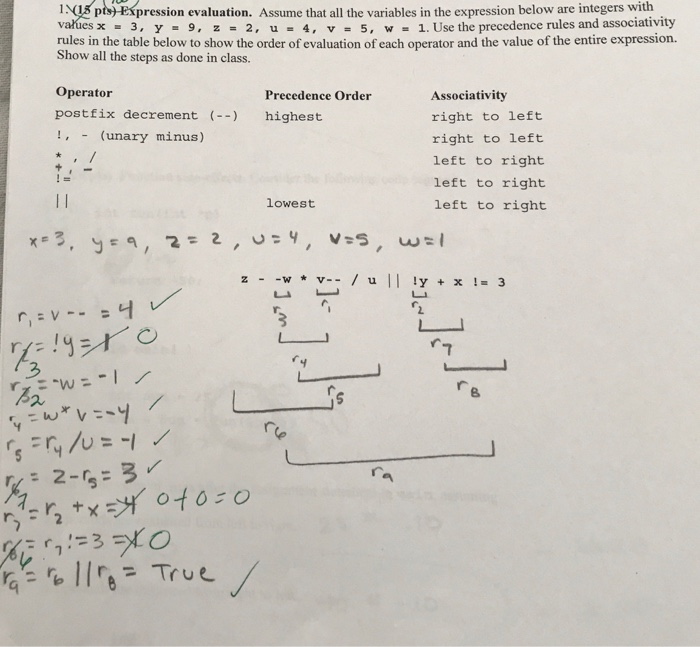 1. (15 pts) Expression evaluation. Assume that all the variables in the expression below are integers with
values x = 3, y = 9, z = 2, u = 4, v = 5, w = 1. Use the precedence rules and associativity
rules in the table below to show the order of evaluation of each operator and the value of the entire expression.
Show all the steps as done in class.
Operator Precedence Order Associativity
postfix decrement (--) highest right to left
!, - (unary minus) right to left
*, / left to right
+, -
!= left to right
|| lowest left to right
x=3, y=9, z=2, u=4, v=5, w=1
z - -w * v-- / u || !y + x != 3
r1 = v-- = 4 ✓
r3 r1 r2
= !y = 0
3
r4 r7
= -w = -1 ✓
2
r5 r8
r4 = w* v = -4 ✓
r6
r5 = r4 /u = -1 ✓
r9
= z - r5 = 3 ✓
7
r7 = r2 + x = 0+0=0
= r7 != 3 = 0
6
r9 = r6 || r8 = True ✓